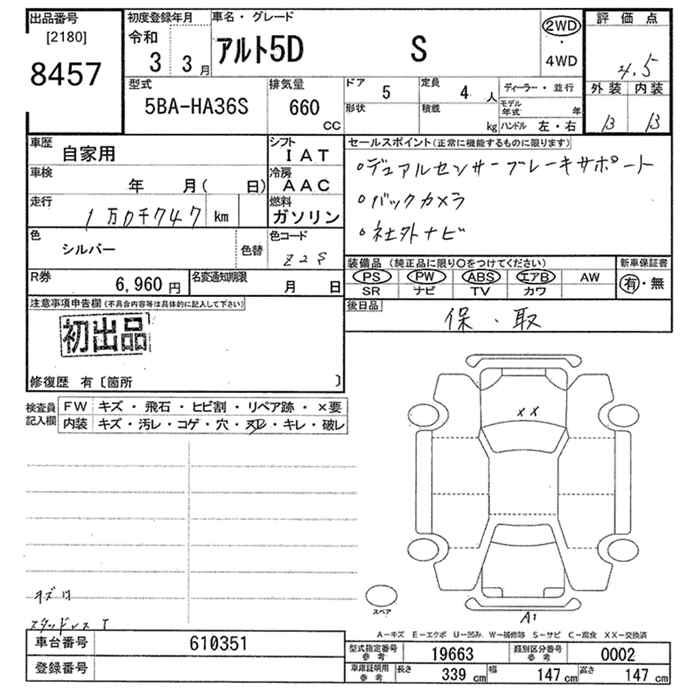 出品番号 初度登録年月 車名・グレード 評価点
[2180] 令和 2WD・4WD
8457 3 3月 アルト5D S 4.5
型式 排気量 ドア 定員 ディーラー・並行 外装 内装
5BA-HA36S 660 CC 5 4人 モデル年式 年 B B
形状 積載 kg ハンドル 左・右
車歴 自家用 シフト IAT セールスポイント(正常に機能するものに限ります)
車検 年 月( 日) 冷房 AAC ○デュアルセンサーブレーキサポート
走行 1万0千747 km 燃料 ガソリン ○バックカメラ
色 シルバー 色替 色コード Z2S ○社外ナビ
装備品(純正品に限り○をつけてください) 新車保証書
R券 6,960円 名変通知期限 月 日 PS PW ABS エアB AW 有・無
SR ナビ TV カワ
注意事項申告欄(不具合内容等は具体的に記入して下さい) 後日品
初出品 保・取
修復歴 有〔箇所 〕
検査員記入欄 FW キズ・飛石・ヒビ割・リペア跡・×要
内装 キズ・汚レ・コゲ・穴・スレ・キレ・破レ
XX
スペア A1
A-キズ E-エクボ U-凹み W-補修跡 S-サビ C-腐食 XX-交換済
車台番号 610351 型式指定番号 参考 19663 類別区分番号 参考 0002
登録番号 車庫証明用 参考 長さ 339 cm 幅 147 cm 高さ 147 cm